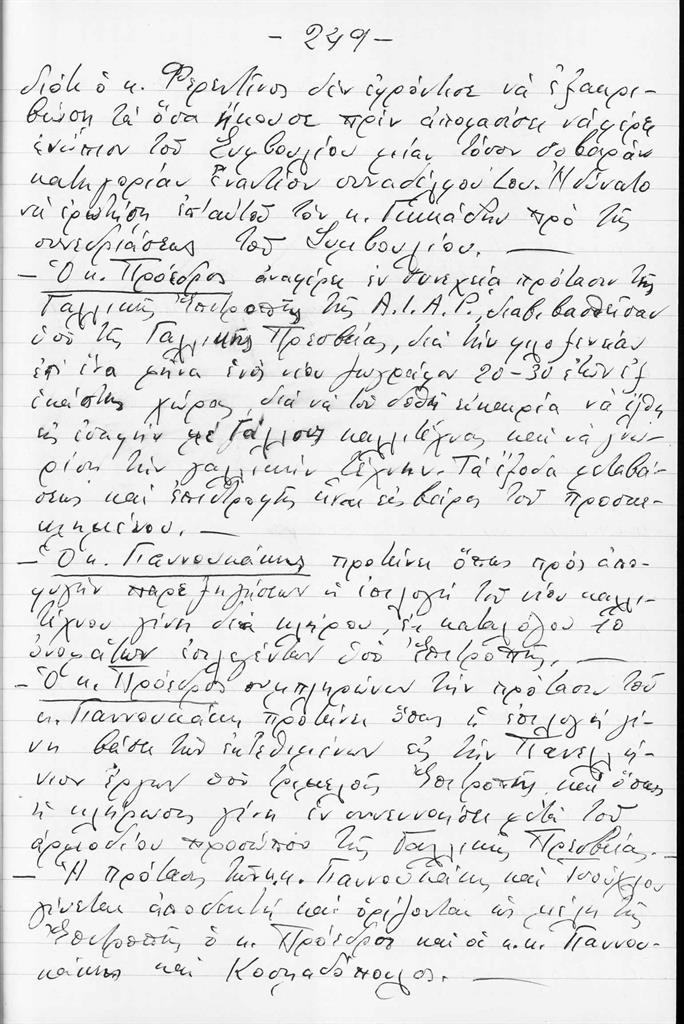 - 249 -
διότι ὁ κ. Φερεντῖνος δὲν ἐφρόντισε νὰ ἐξακρι-
βώση τὰ ὅσα ἤκουσε πρὶν ἀποφασίσει νὰ φέρει
ἐνώπιον τοῦ Συμβουλίου μίαν τόσον σοβαρὰν
κατηγορίαν ἐναντίον συναδέλφου του. Ἠδύνατο
νὰ ἐρωτήση ἐπ' αὐτοῦ τὸν κ. πρὸ τῆς
συνεδριάσεως τοῦ Συμβουλίου. —
- Ὁ κ. Πρόεδρος ἀναφέρει ἐν συνεχεία πρότασιν τῆς
Γαλλικῆς Ἐπιτροπῆς τῆς A.I.A.P., διαβιβασθεῖσαν
ὑπὸ τῆς Γαλλικῆς Πρεσβείας, διὰ τὴν φιλοξενίαν
ἐπὶ ἕνα μῆνα ἑνὸς νέου ζωγράφου 20-30 ἐτῶν ἐξ
ἑκάστης χώρας, διὰ νὰ τοῦ δοθῆ εὐκαιρία νὰ ἔλθη
εἰς ἐπαφὴν μὲ Γάλλους καλλιτέχνας καὶ νὰ γνω-
ρίση τὴν γαλλικὴν τέχνην. Τὰ ἔξοδα μεταβά-
σεως καὶ ἐπιστροφῆς εἶναι εἰς βάρος τοῦ προσκε-
κλημένου. —
- Ὁ κ. Γιαννουκάκης προτείνει ὅπως πρὸς ἀπο-
φυγὴν παρεξηγήσεων ἡ ἐπιλογὴ τοῦ νέου καλλι-
τέχνου γίνη διὰ κλήρου, ἐκ καταλόγου 10
ὀνομάτων ἐπιλεγέντων ὑπὸ Ἐπιτροπῆς. —
- Ὁ κ. Πρόεδρος συμπληρώνων τὴν πρότασιν τοῦ
κ. Γιαννουκάκη προτείνει ὅπως ἡ ἐπιλογὴ γί-
νη βάσει τῶν ἐκτεθειμένων εἰς τὴν Πανελλή-
νιον ἔργων ὑπὸ τριμελοῦς Ἐπιτροπῆς καὶ ὅπως
ἡ κλήρωσις γίνη ἐν συνεννοήσει μετὰ τοῦ
ἁρμοδίου προσώπου τῆς Γαλλικῆς Πρεσβείας. —
- Ἡ πρότασις τῶν κ.κ. Γιαννουκάκη καὶ
γίνεται ἀποδεκτὴ καὶ ὁρίζονται ὡς μέλη τῆς
Ἐπιτροπῆς ὁ κ. Πρόεδρος καὶ οἱ κ.κ. Γιαννου-
κάκης καὶ Κοσμαδόπουλος. —